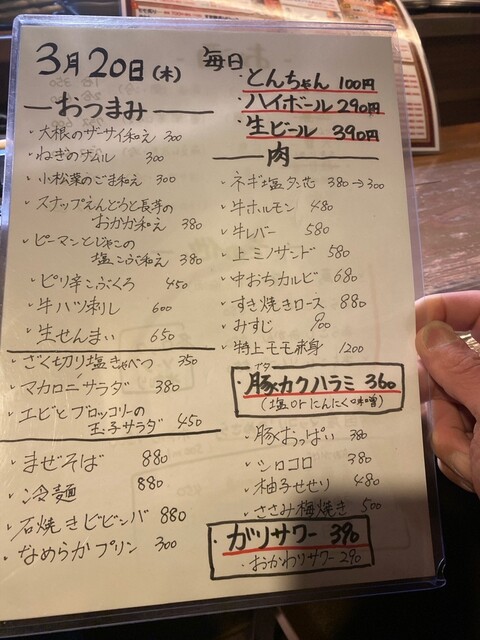 3月20日(木)
毎日
・とんちゃん 100円
・ハイボール 290円
・生ビール 390円
おつまみ
・大根のザーサイ和え 300
・ねぎのナムル 300
・小松菜のごま和え 300
・スナップえんどうと長芋の
おかか和え 380
・ピーマンとじゃこの
塩こぶ和え 380
・ピリ辛こぶくろ 450
・牛ハツ刺し 600
・生せんまい 650
・ざく切り塩きゃべつ 350
・マカロニサラダ 380
・エビとブロッコリーの
玉子サラダ 450
・まぜそば 880
・冷麺 880
・石焼きビビンバ 880
・なめらかプリン 300
肉
・ネギ塩タン芯 380→300
・牛ホルモン 480
・牛レバー 580
・上ミノサンド 580
・中おちカルビ 680
・すき焼きロース 880
・みすじ 900
・特上モモ赤身 1200
・豚カクハラミ 360
ブタ
(塩orにんにく味噌)
・豚おっぱい 380
・シロコロ 380
・柚子せせり 480
・ささみ梅焼き 500
・ガリサワー 390
・おかわりサワー 290